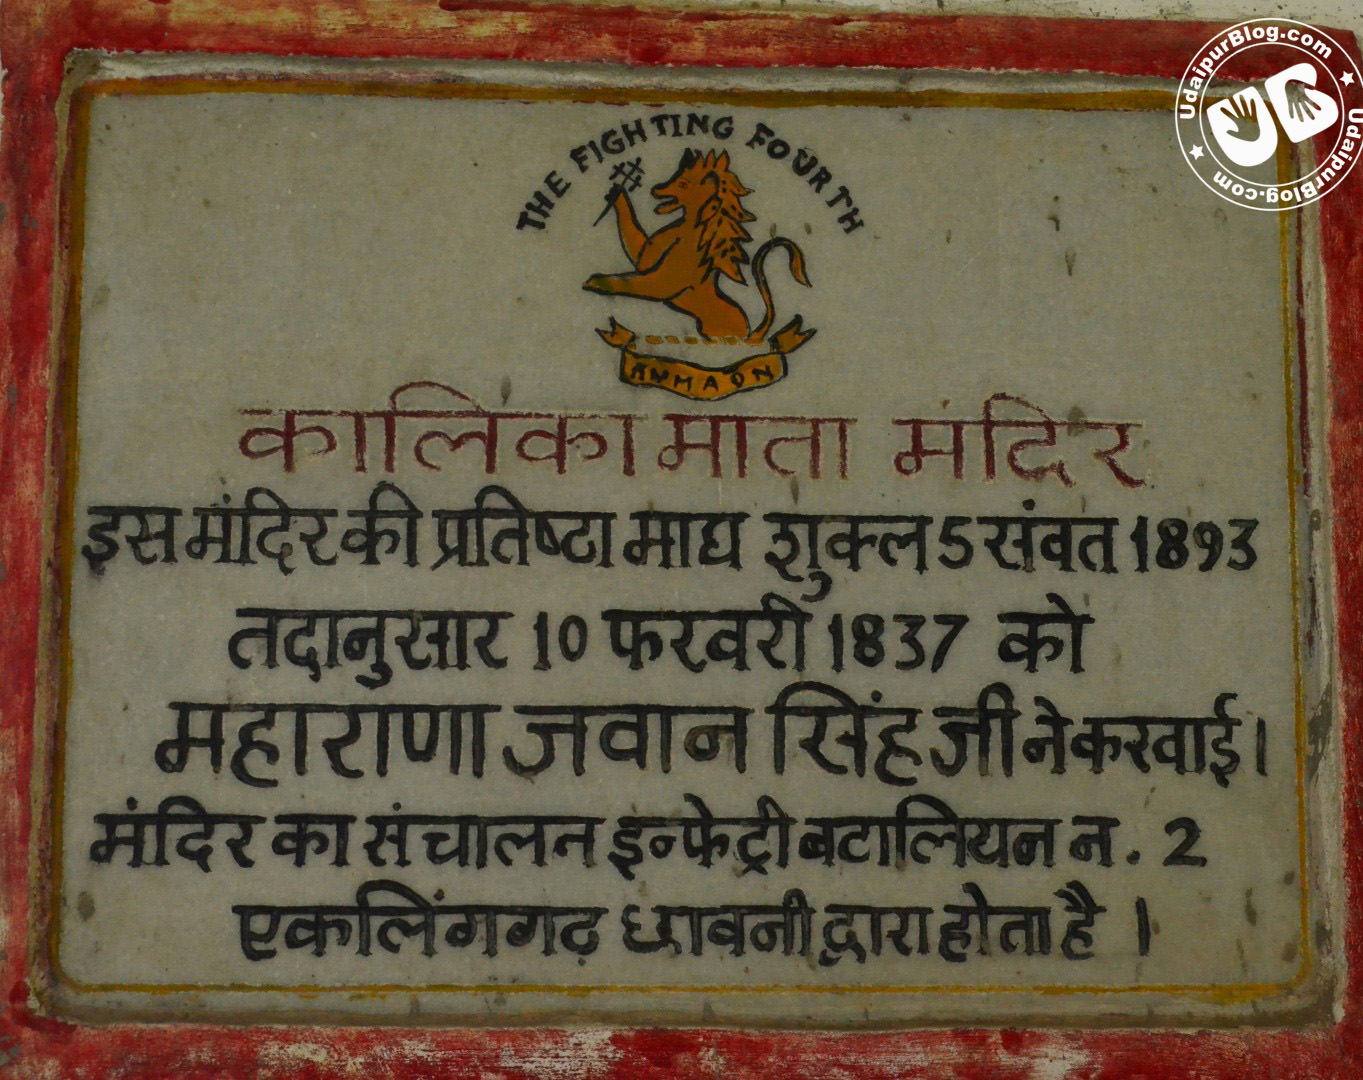 THE FIGHTING FOURTH
कालिंका माता मंदिर
इस मंदिर की प्रतिष्टा माघ शुक्ल 5 संवत 1893
तदानुसार 10 फरवरी 1837 को
महाराणा जवान सिंह जी ने करवाई।
मंदिर का संचालन इन्फेट्री बटालियन न. 2
एकलिंगगढ़ छावनी द्वारा होता है ।
UdaipurBlog.com
UdaipurBlog.com